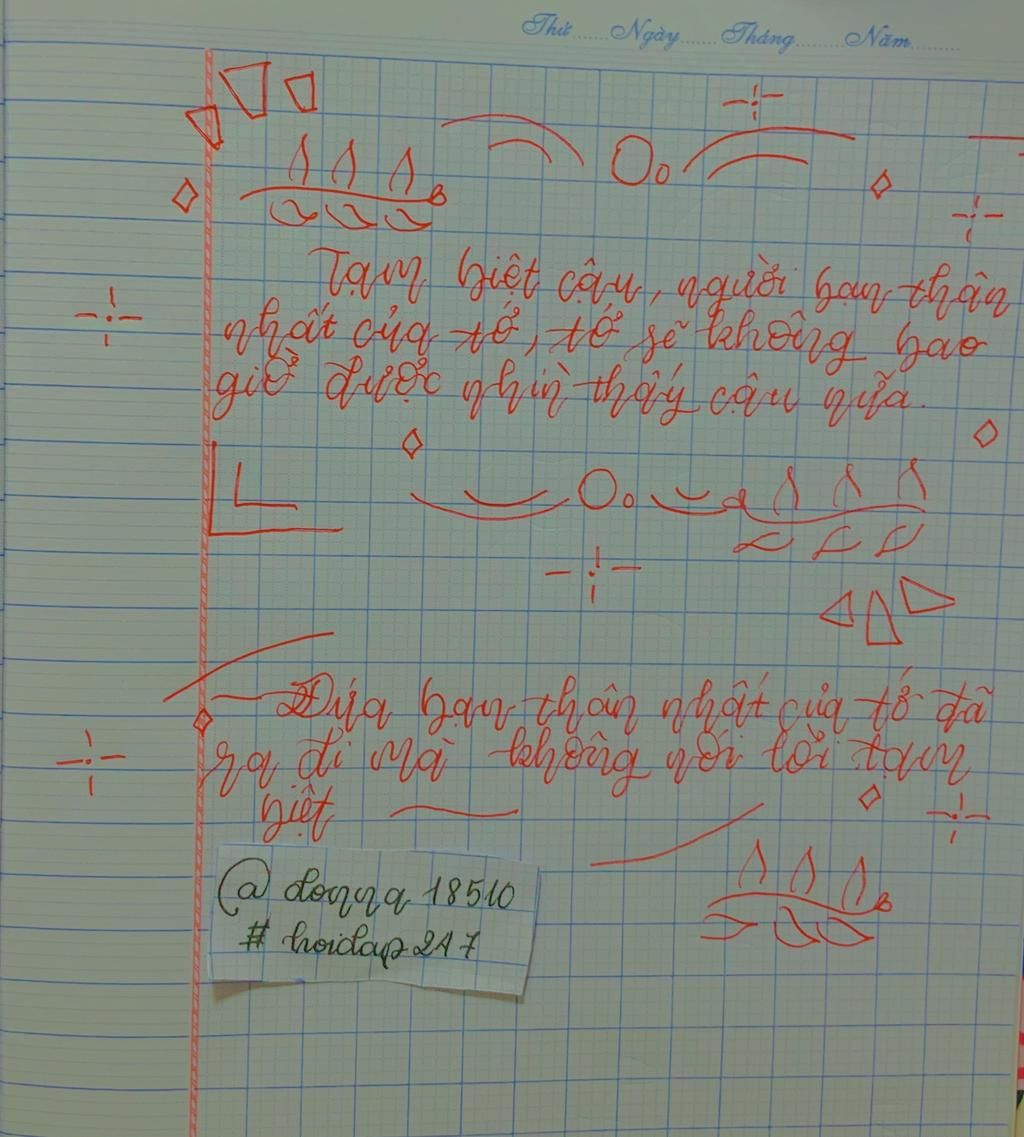 Thứ Ngày Tháng Năm
Tạm biệt cậu, người bạn thân
nhất của tớ, tớ sẽ không bao
giờ được nhìn thấy cậu nữa.
Đứa bạn thân nhất của tớ đã
ra đi mà không nói lời tạm
biệt
@ donna 18510
# hoidap 247